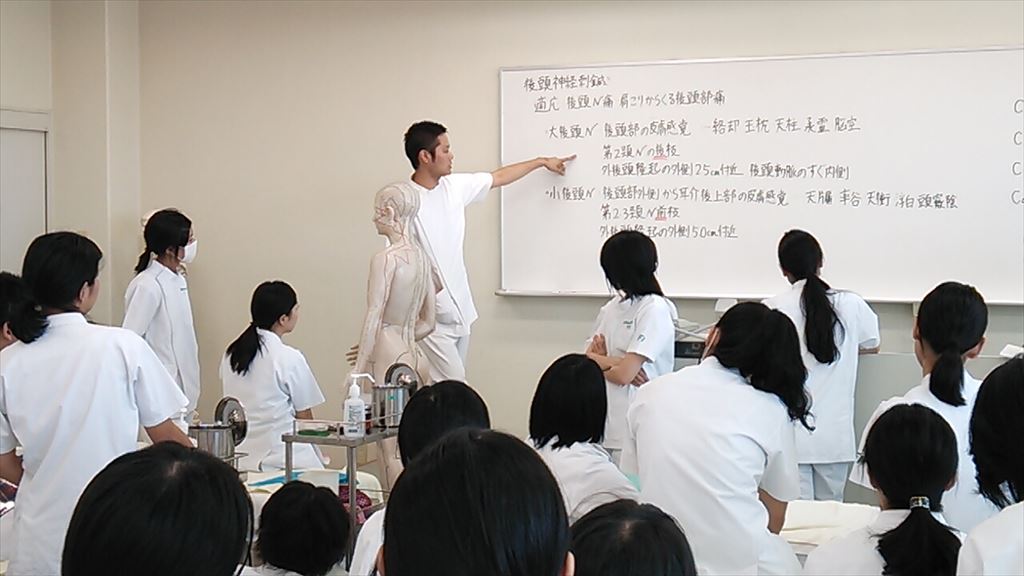 後頭神経刺鍼
適応 後頭N痛 肩こりからくる後頭部痛
・大後頭N 後頭部の皮膚感覚 ー 絡却 玉枕 天柱 承霊 脳空
第2頚Nの後枝
外後頭隆起の外側2.5cm付近 後頭動脈のすぐ内側
・小後頭N 後頭部外側から耳介後上部の皮膚感覚 天牖 率谷 天衝 浮白 頭竅陰
第2 3頚N前枝
外後頭隆起の外側5.0cm付近
C
C
C